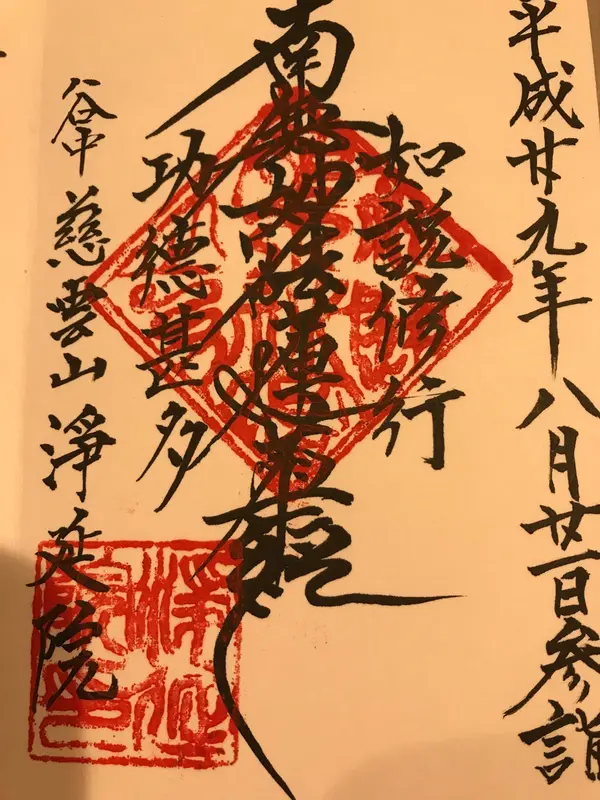 平成廿九年八月廿一日参詣
如説修行
南無妙法蓮華経
功徳甚多
谷中 慈雲山 淨延院